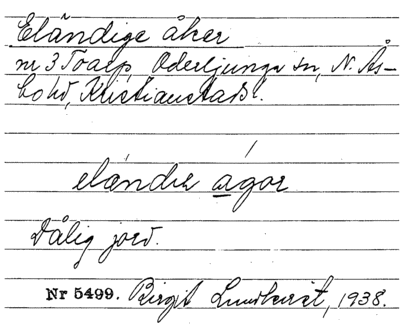 Eländige åker
nr 3 Toarp, Oderljunga sn, N. Ås-
bo hd, Kristianstads l.
eländie ågor
Dålig jord.
Nr 5499. Birgit Lundkvist, 1938.